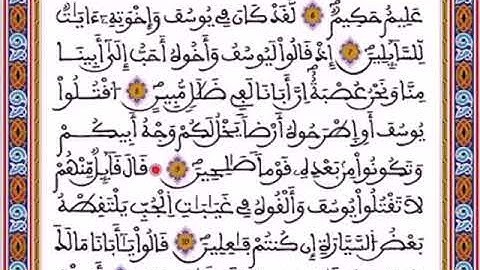 عَلِيمٌ حَكِيمٌ 6 لَّقَدْ كَانَ فِي يُوسُفَ وَإِخْوَتِهِۦٓ ءَايَٰتٌ
لِّلسَّآئِلِينَ 7 إِذْ قَالُواْ لَيُوسُفُ وَأَخُوهُ أَحَبُّ إِلَىٰٓ أَبِينَا
مِنَّا وَنَحْنُ عُصْبَةٌ إِنَّ أَبَانَا لَفِي ضَلَٰلٍ مُّبِينٍ 8 ٱقْتُلُواْ
يُوسُفَ أَوِ ٱطْرَحُوهُ أَرْضاً يَخْلُ لَكُمْ وَجْهُ أَبِيكُمْ
وَتَكُونُواْ مِنۢ بَعْدِهِۦ قَوْماً صَٰلِحِينَ 9 قَالَ قَآئِلٌ مِّنْهُمْ
لَا تَقْتُلُواْ يُوسُفَ وَأَلْقُوهُ فِي غَيَٰبَٰتِ ٱلْجُبِّ يَلْتَقِطْهُ
بَعْضُ ٱلسَّيَّارَةِ إِن كُنتُمْ فَٰعِلِينَ 10 قَالُواْ يَٰٓأَبَانَا مَا لَكَ